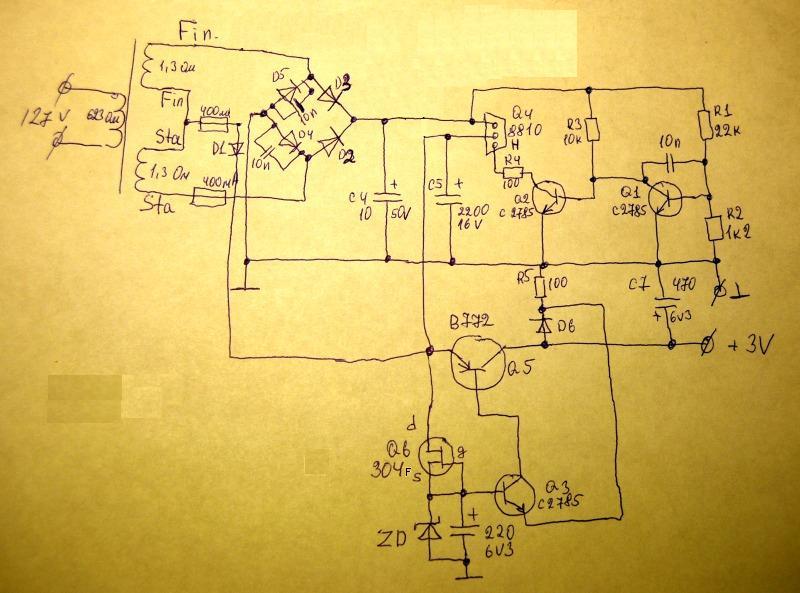 Fin.
1,3 Ωм
127 V
623 Ωм
Fin
400мА
Sta
D1
1,3 Ом
400мА
Sta
D5
D3
10n
D4
10n
D2
C4
10
+
50V
C5
+
2200
16V
Q4
8810
H
R4
100
Q2
C2785
R3
10к
Q1
C2785
10n
R1
22к
R2
1к2
R5
100
C7
470
+
6v3
⊥
D6
+3V
B772
Q5
d
Q6
g
304F
s
Q3
C2785
ZD
+
220
6V3